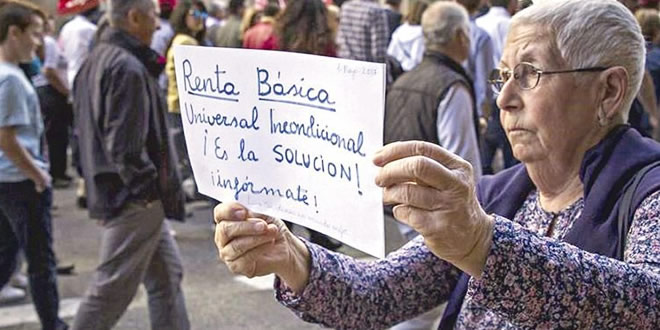 1 Mayo 2017
Renta Básica
Universal Incondicional
¡Es la SOLUCION!
¡infórmaté!